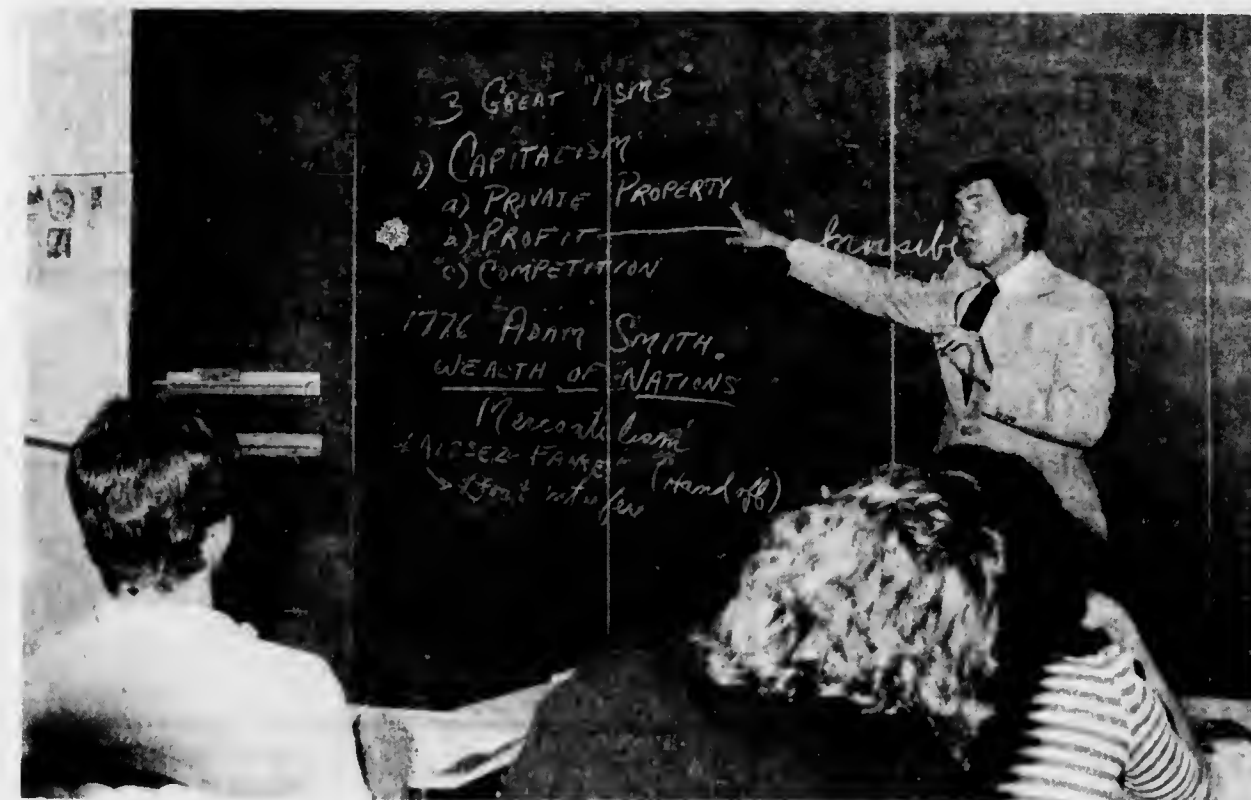 3 GREAT "ISMS"
1) CAPITALISM
a) PRIVATE PROPERTY
b) PROFIT "Invisibe
c) COMPETITION
1776 ADAM SMITH.
WEALTH OF NATIONS
Mercantilism
LAISSEZ-FAIRE (Hand off)
Dont interfere